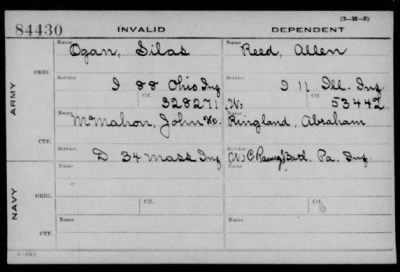 (3-H-3)
84430 INVALID DEPENDENT
Name Name
Ogan, Silas Reed, Allen
ORIG. Service Service
I 88 Ohio Inf D 11 Ill. Inf
Ctf. Ctf.
328271 No. 53442
ARMY
Name Name
McMahon, John Ringland, Abraham
CTF. Service Service
D 34 Mass Inf Batl. Pa. Inf
Name Name
ORIG. Service Service
Ctf. Ctf.
NAVY
Name Name
CTF. Service Service